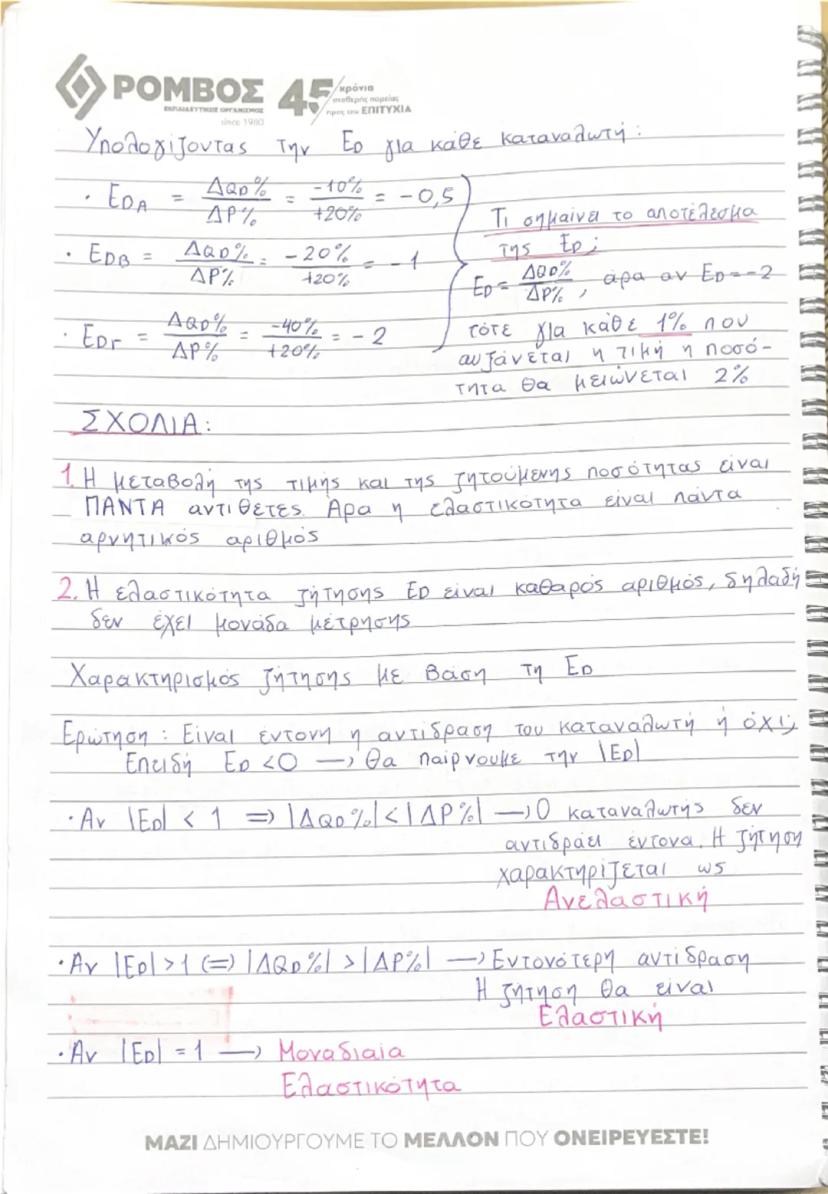 ΡΟΜΒΟΣ
ΕΚΠΑΙΔΕΥΤΙΚΟΣ ΟΡΓΑΝΙΣΜΟΣ
since 1980
45 χρόνια
σταθερής πορείας
προς την ΕΠΙΤΥΧΙΑ
Υπολογίζοντας την ED για κάθε καταναλωτή:
· EDA = ΔQD% / ΔP% = -10% / +20% = -0,5
· EDB = ΔQD% / ΔP% = -20% / +20% = -1
· EDΓ = ΔQD% / ΔP% = -40% / +20% = -2
Τι σημαίνει το αποτέλεσμα
της ED;
ED = ΔQD% / ΔP%, άρα αν ED = -2
τότε για κάθε 1% που
αυξάνεται η τιμή η ποσό-
τητα θα μειώνεται 2%
ΣΧΟΛΙΑ:
1. Η μεταβολή της τιμής και της ζητούμενης ποσότητας είναι
ΠΑΝΤΑ αντιθετες. Άρα η ελαστικότητα είναι πάντα
αρνητικός αριθμός
2. Η ελαστικότητα ζήτησης ED είναι καθαρός αριθμός, δηλαδή
δεν έχει μονάδα μέτρησης
Χαρακτηρισμός ζήτησης με βάση τη ED
Ερώτηση: Είναι έντονη η αντίδραση του καταναλωτή ή όχι;
Επειδή ED < 0 → Θα παίρνουμε την |ED|
· Αν |ED| < 1 => |ΔQD%| < |ΔP%| → Ο καταναλωτής δεν
αντιδράει έντονα. Η ζήτηση
χαρακτηρίζεται ως
Ανελαστική
· Αν |ED| > 1 (=) |ΔQD%| > |ΔP%| → Εντονότερη αντίδραση
Η ζήτηση θα είναι
Ελαστική
· Αν |ED| = 1 → Μοναδιαία
Ελαστικότητα
ΜΑΖΙ ΔΗΜΙΟΥΡΓΟΥΜΕ ΤΟ ΜΕΛΛΟΝ ΠΟΥ ΟΝΕΙΡΕΥΕΣΤΕ!